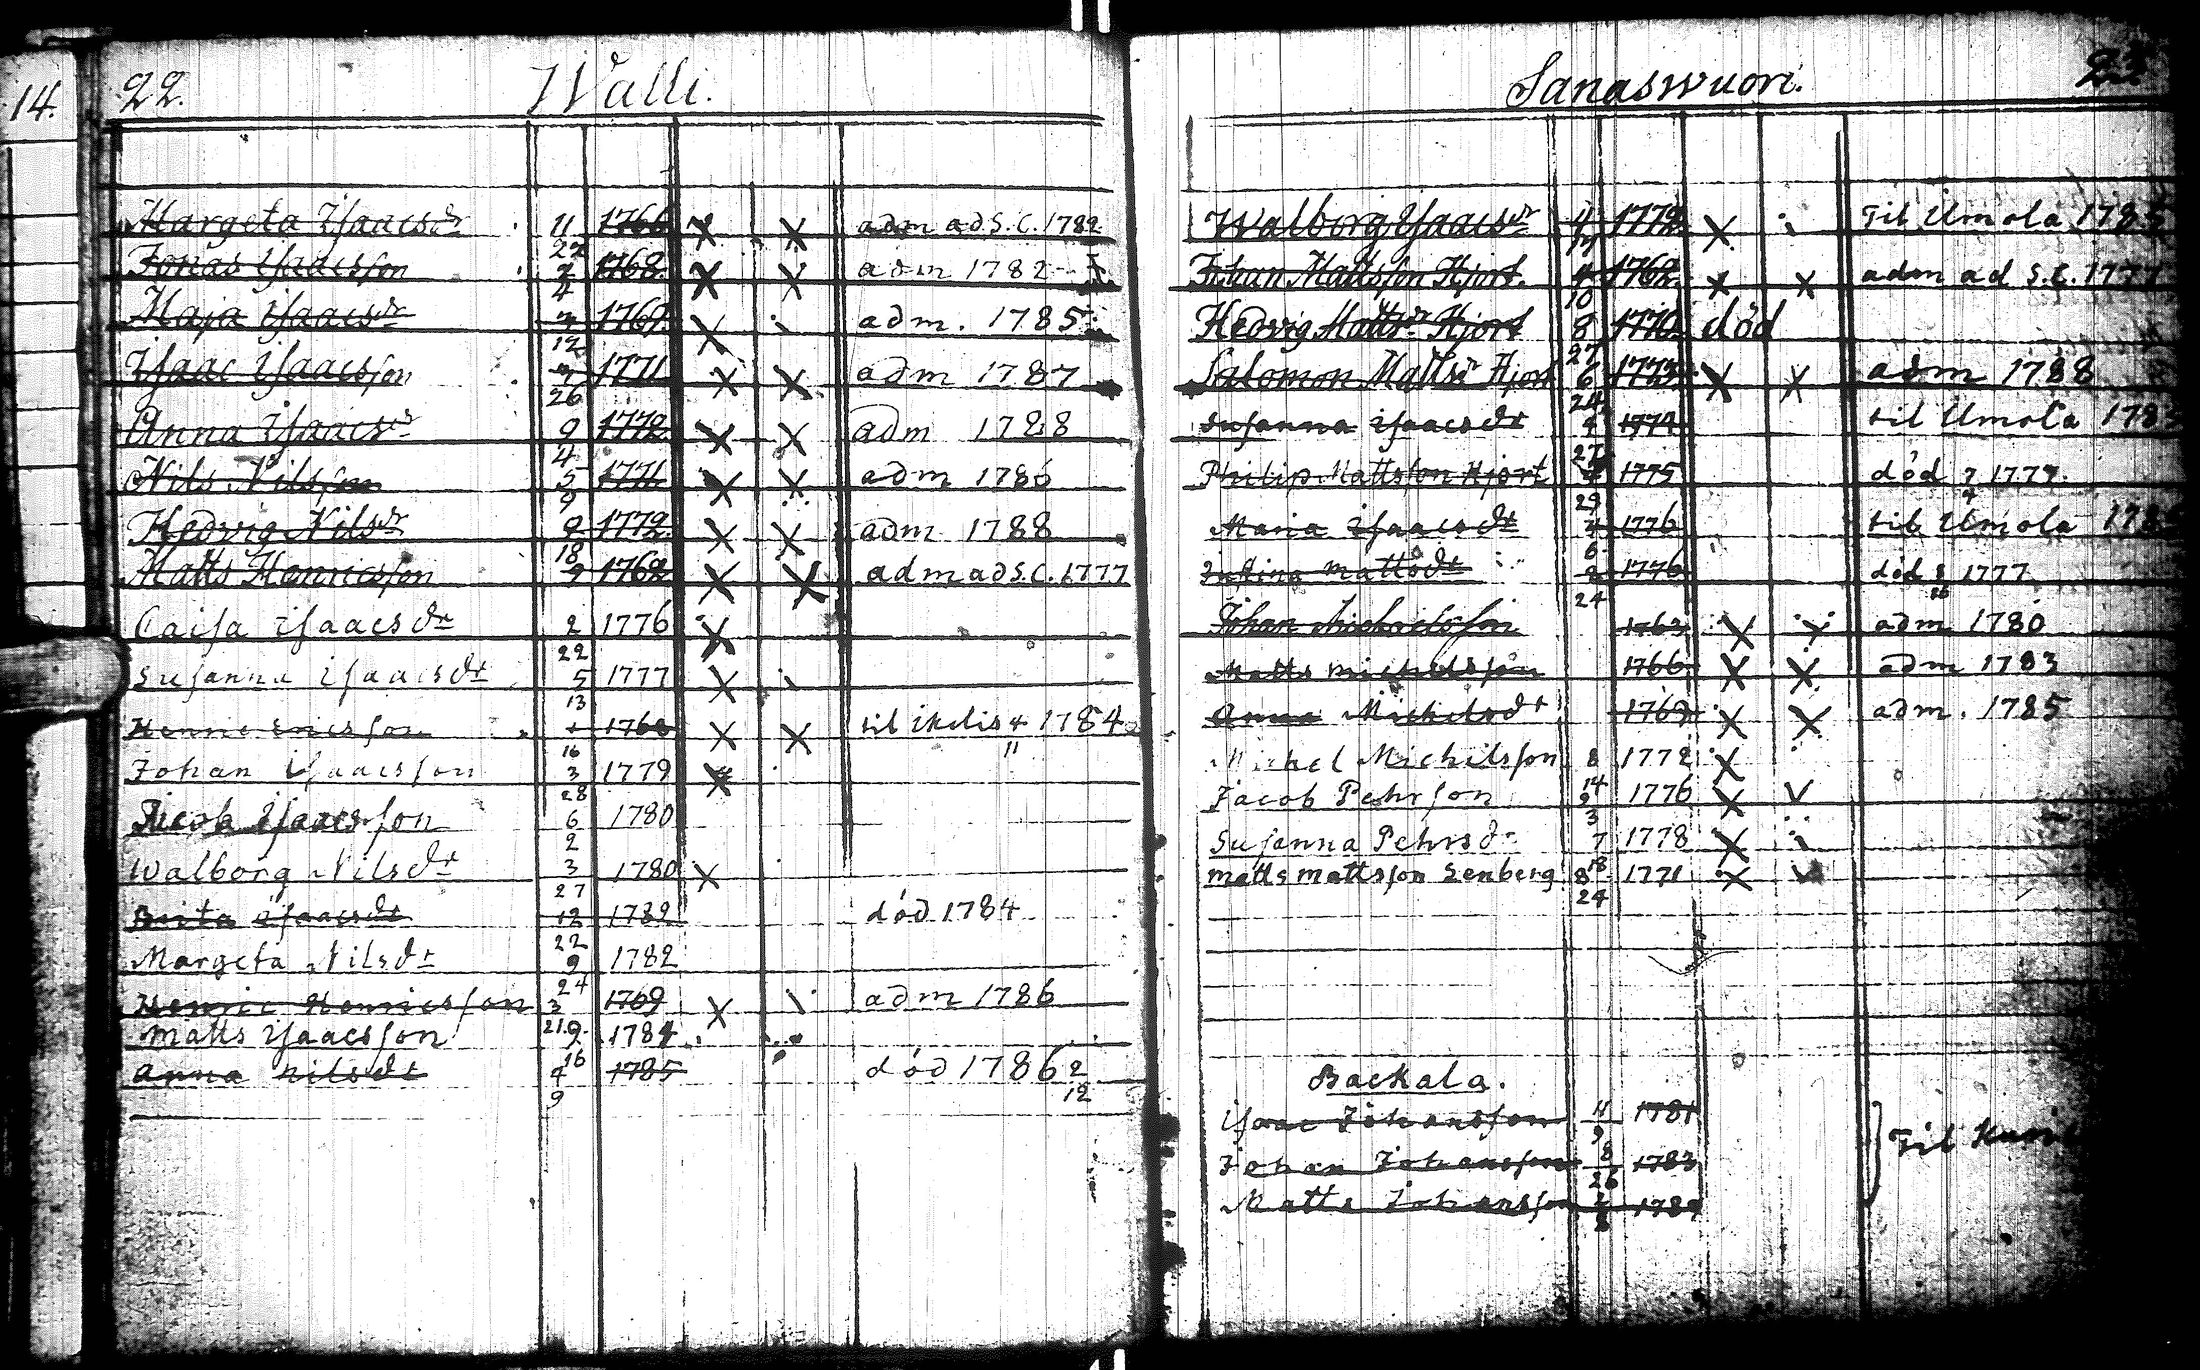 14.
22. Walli.
Margeta Isaacsdr 11 1766 X X adm ad S.C. 1782
22
Jonas Isaacsson 2 1768 X X adm 1782
4
Maja Isaacsdr 1769 X adm. 1785
12
Isaac Isaacsson 1771 X X adm 1787
26
Anna Isaacsdr 9 1772 X X adm 1788
4
Nils Nilsson 5 1771 X X adm 1786
9
Hedvig Nilsdr 9 1772 X X adm 1788
18
Matts Henricsson 9 1762 X X adm ad S.C. 1777
Caisa Isaacsdr 2 1776 X
22
Susanna Isaacsdr 5 1777 X
13
Henric Ericsson 1 1768 X X til Ikolis 4 1784
16 11
Johan Isaacsson 3 1779 X
28
Jacob Isaacsson 6 1780
2
Walborg Nilsdr 3 1780 X
27
Brita Isaacsdr 12 1782 död 1784
22
Margeta Nilsdr 9 1782
24
Henric Henricsson 3 1769 X adm 1786
21
Matts Isaacsson 9 1784
16
Anna Nilsdr 4 1785 död 1786 2
9 12
Sanaswuori. 23
Walborg Isaacsdr 4 1772 X til Umola 178
Johan Mattsson Hjort 4 1762 X X adm ad S.C. 177
10
Hedvig Mattsdr Hjort 8 1770 död
27
Salomon Mattsn Hjort 6 1773 X X adm 1788
24
Susanna Isaacsdr 1774 til Umola 178
27
Philip Mattsson Hjort 1775 död 7 1777.
29 4
Maria Isaacsdr 1776 til Umola 178
6
mattsdr 2 1776 död 8 1777
24 16
Johan Michelsson 1763 X adm 1780
Matts Michelsson 1766 X X adm 1783
Anna Michelsdr 1769 X X adm. 1785
Michel Michilsson 8 1772 X
14
Jacob Pehrson 9 1776 X v
3
Susanna Pehrsdr 7 1778 X
18
matts mattsson Senberg 8 1771 X v
24
Backala.
Isaac Johansson 11 1781
9
Johan Johansson 8 1783 } Til
26
Matts Johansson 2 1789
8